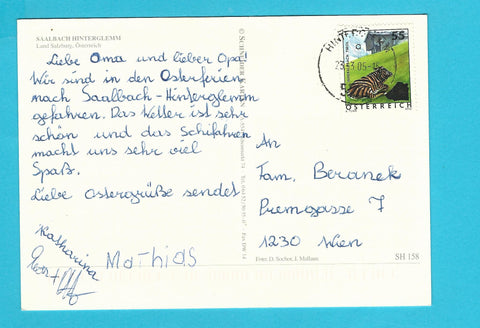 SAALBACH HINTERGLEMM
Land Salzburg, Österreich
Liebe Oma und lieber Opa!
Wir sind in den Osterferien
nach Saalbach-Hinterglemm
gefahren. Das Wetter ist sehr
schön und das Schifahren
macht uns sehr viel
Spaß.
Liebe Ostergrüße sendet
Katharina
Mathias
55
ÖSTERREICH
An
Fam. Beranek
Premgasse 7
1230 Wien
Foto: D. Sochor, J. Mallaun
SH 158